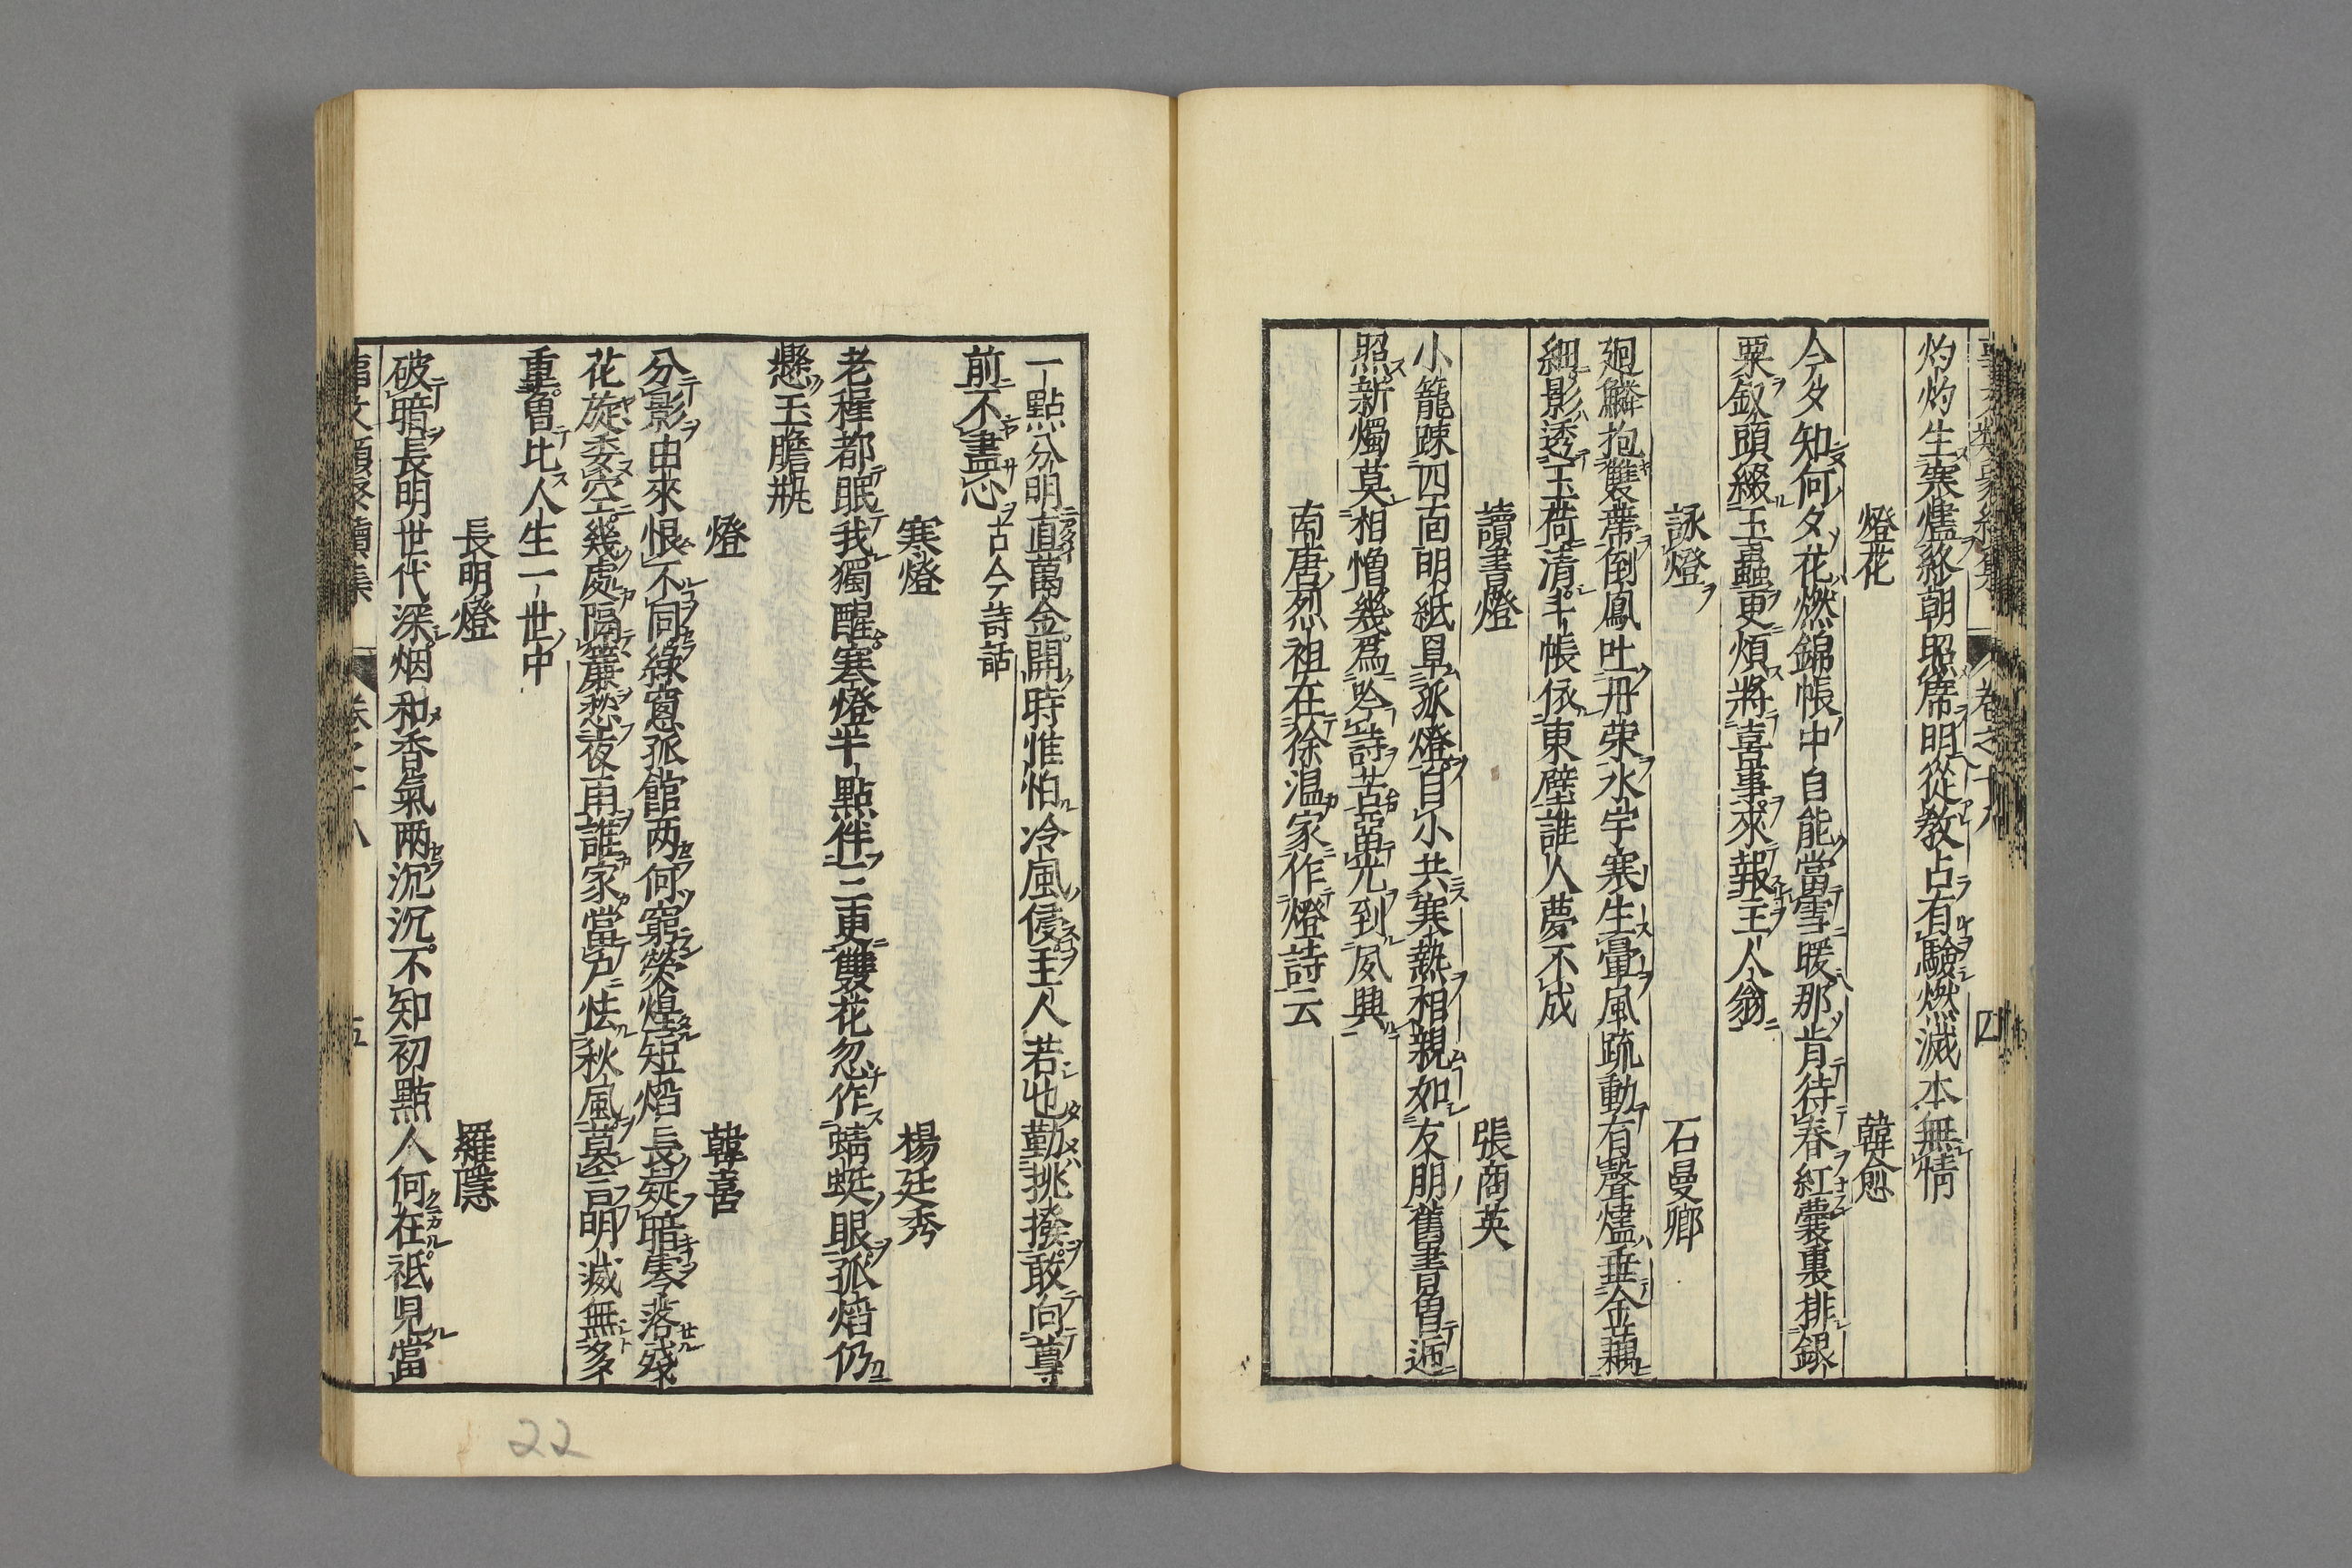 灼灼生寒燼終朝照席明從教占有驗燃滅本無情
燈花
韓愈
今夕知何夕花燃錦帳中自能當雪暖那肯待春紅囊裏排銀
粟釵頭綴玉蟲更煩將喜事來報主人翁
詠燈
石曼卿
廻鱗抱雙蒂倒鳳吐丹荣氷宇寒生暈風疏動有聲燼垂金藕
細影透玉荷清半帳依東壁誰人夢不成
讀書燈
張商英
小籠踈四面明紙皁孤燈自小共寒熱相親如友朋舊書曾遞
照新燭莫相憎幾爲吟詩苦留光到夙興
南唐烈祖在徐温家作燈詩云
卷之十八
四
一點分明直萬金開時惟怕冷風侵主人若也勤挑撥敢向尊
前不盡心古今詩話
寒燈
楊廷秀
老穉都眠我獨醒寒燈半點伴三更雙花忽作蜻蜓眼孤熖仍
懸玉膽瓶
燈
韓喜
分影由來恨不同綠窻孤館两何窮熒煌短熖長疑暗零落殘
花旋委空幾處隔簾愁夜雨誰家當户怯秋風莫言明滅無多
重曾比人生一世中
長明燈
羅隱
破暗長明世代深烟和香氣兩沉沉不知初點人何在祗見當
卷之十八
五
22